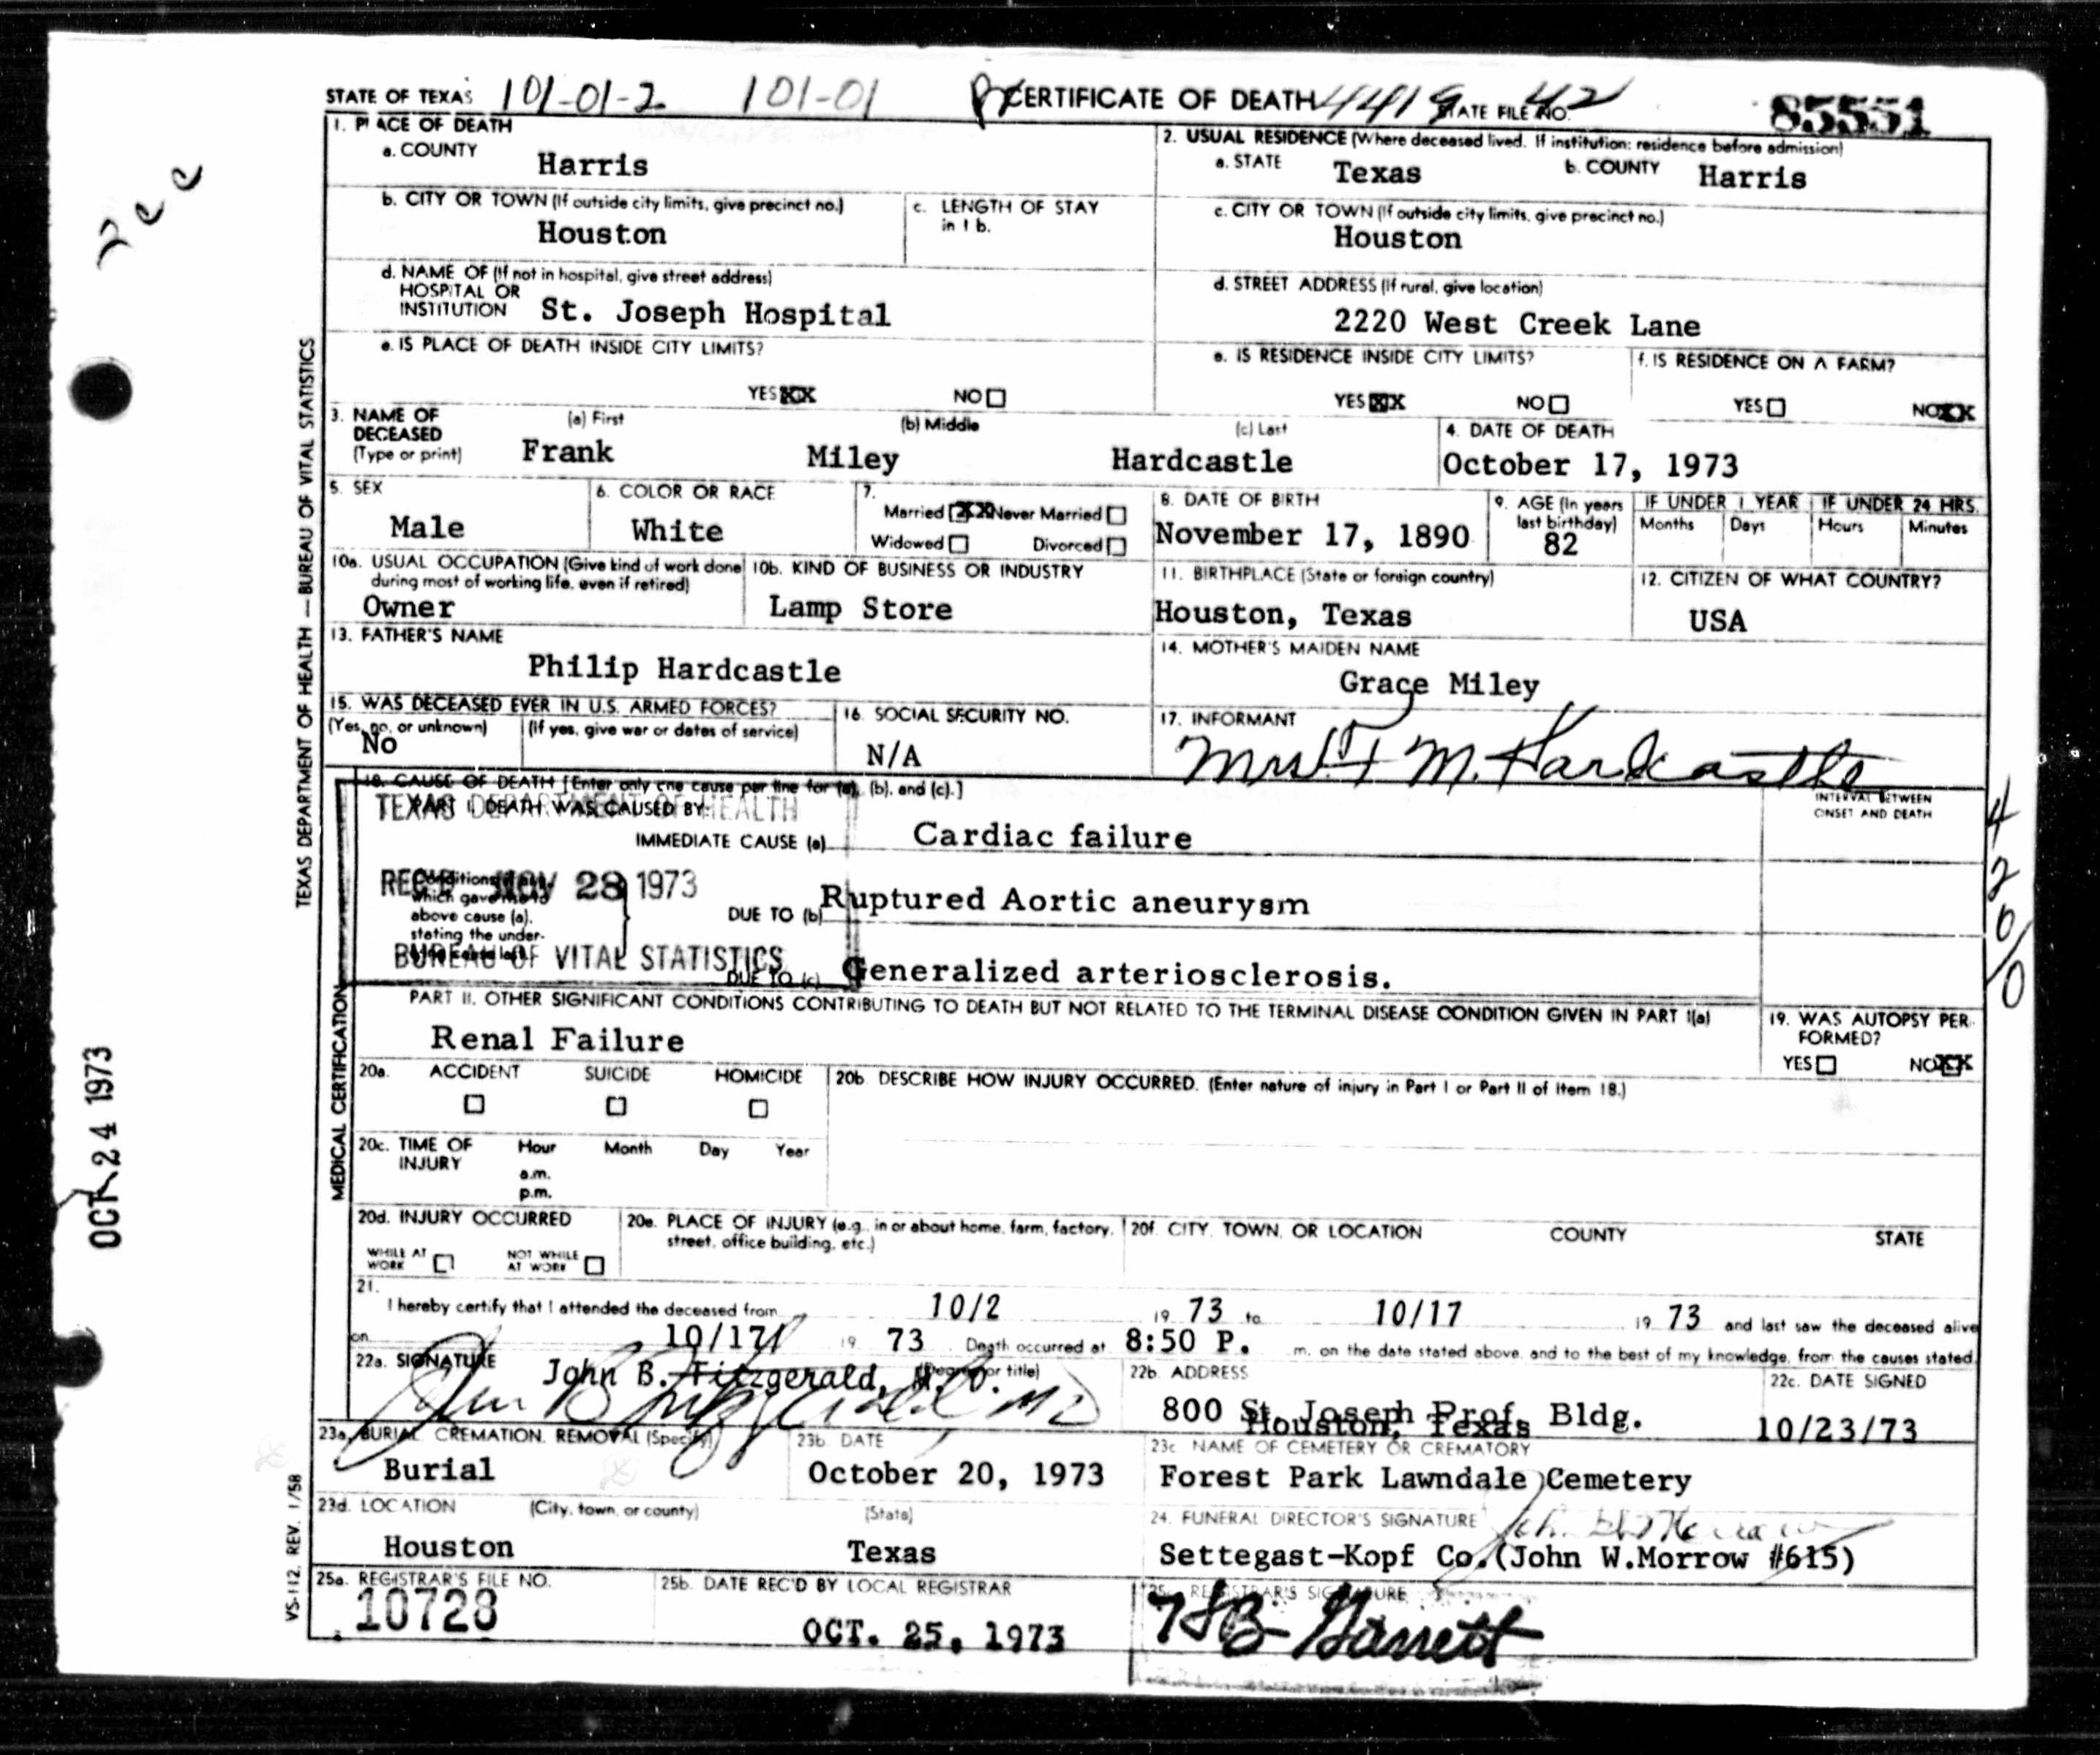 STATE OF TEXAS 101-01-2 101-01 CERTIFICATE OF DEATH 4419 STATE FILE NO. 42 85551
1. PLACE OF DEATH
a. COUNTY
Harris
2. USUAL RESIDENCE (Where deceased lived. If institution: residence before admission)
a. STATE Texas b. COUNTY Harris
b. CITY OR TOWN (If outside city limits, give precinct no.)
Houston
c. LENGTH OF STAY
in 1 b.
c. CITY OR TOWN (If outside city limits, give precinct no.)
Houston
d. NAME OF (If not in hospital, give street address)
HOSPITAL OR
INSTITUTION St. Joseph Hospital
d. STREET ADDRESS (If rural, give location)
2220 West Creek Lane
e. IS PLACE OF DEATH INSIDE CITY LIMITS?
YES XX NO
e. IS RESIDENCE INSIDE CITY LIMITS?
YES XX NO
f. IS RESIDENCE ON A FARM?
YES NO XX
3. NAME OF
DECEASED
(Type or print)
(a) First (b) Middle (c) Last
Frank Miley Hardcastle
4. DATE OF DEATH
October 17, 1973
5. SEX
Male
6. COLOR OR RACE
White
7.
Married XX Never Married
Widowed Divorced
8. DATE OF BIRTH
November 17, 1890
9. AGE (In years
last birthday)
82
IF UNDER 1 YEAR IF UNDER 24 HRS.
Months Days Hours Minutes
10a. USUAL OCCUPATION (Give kind of work done
during most of working life, even if retired)
Owner
10b. KIND OF BUSINESS OR INDUSTRY
Lamp Store
11. BIRTHPLACE (State or foreign country)
Houston, Texas
12. CITIZEN OF WHAT COUNTRY?
USA
13. FATHER'S NAME
Philip Hardcastle
14. MOTHER'S MAIDEN NAME
Grace Miley
15. WAS DECEASED EVER IN U.S. ARMED FORCES?
(Yes, no, or unknown) (If yes, give war or dates of service)
No
16. SOCIAL SECURITY NO.
N/A
17. INFORMANT
Mrs. F M. Hardcastle
18. CAUSE OF DEATH [Enter only one cause per line for (a), (b), and (c).]
PART I. DEATH WAS CAUSED BY:
TEXAS DEPARTMENT OF HEALTH
INTERVAL BETWEEN
ONSET AND DEATH
IMMEDIATE CAUSE (a) Cardiac failure
REC'D NOV 28 1973
Conditions
which gave rise to
above cause (a),
stating the under-
DUE TO (b) Ruptured Aortic aneurysm
BUREAU OF VITAL STATISTICS
DUE TO (c) Generalized arteriosclerosis.
PART II. OTHER SIGNIFICANT CONDITIONS CONTRIBUTING TO DEATH BUT NOT RELATED TO THE TERMINAL DISEASE CONDITION GIVEN IN PART I(a)
Renal Failure
19. WAS AUTOPSY PER-
FORMED?
YES NO XX
20a. ACCIDENT SUICIDE HOMICIDE
20b. DESCRIBE HOW INJURY OCCURRED. (Enter nature of injury in Part I or Part II of Item 18.)
20c. TIME OF
INJURY
Hour Month Day Year
a.m.
p.m.
20d. INJURY OCCURRED
WHILE AT
WORK
NOT WHILE
AT WORK
20e. PLACE OF INJURY (e.g., in or about home, farm, factory,
street, office building, etc.)
20f. CITY, TOWN, OR LOCATION COUNTY STATE
21.
I hereby certify that I attended the deceased from 10/2 19 73 to 10/17 19 73 and last saw the deceased alive
on 10/17 19 73 Death occurred at 8:50 P. m. on the date stated above, and to the best of my knowledge, from the causes stated.
22a. SIGNATURE (Degree or title)
John B. Fitzgerald, M. D.
John B Fitzgerald MD
22b. ADDRESS
800 St. Joseph Prof. Bldg.
Houston, Texas
22c. DATE SIGNED
10/23/73
23a. BURIAL, CREMATION, REMOVAL (Specify)
Burial
23b. DATE
October 20, 1973
23c. NAME OF CEMETERY OR CREMATORY
Forest Park Lawndale Cemetery
23d. LOCATION (City, town, or county) (State)
Houston Texas
24. FUNERAL DIRECTOR'S SIGNATURE John W Morrow
Settegast-Kopf Co. (John W.Morrow #615)
25a. REGISTRAR'S FILE NO.
10728
25b. DATE REC'D BY LOCAL REGISTRAR
OCT. 25, 1973
25c. REGISTRAR'S SIGNATURE
Garrett
TEXAS DEPARTMENT OF HEALTH — BUREAU OF VITAL STATISTICS
MEDICAL CERTIFICATION
VS-112, REV. 1/58
OCT 24 1973
rec
4
2
0
/
0